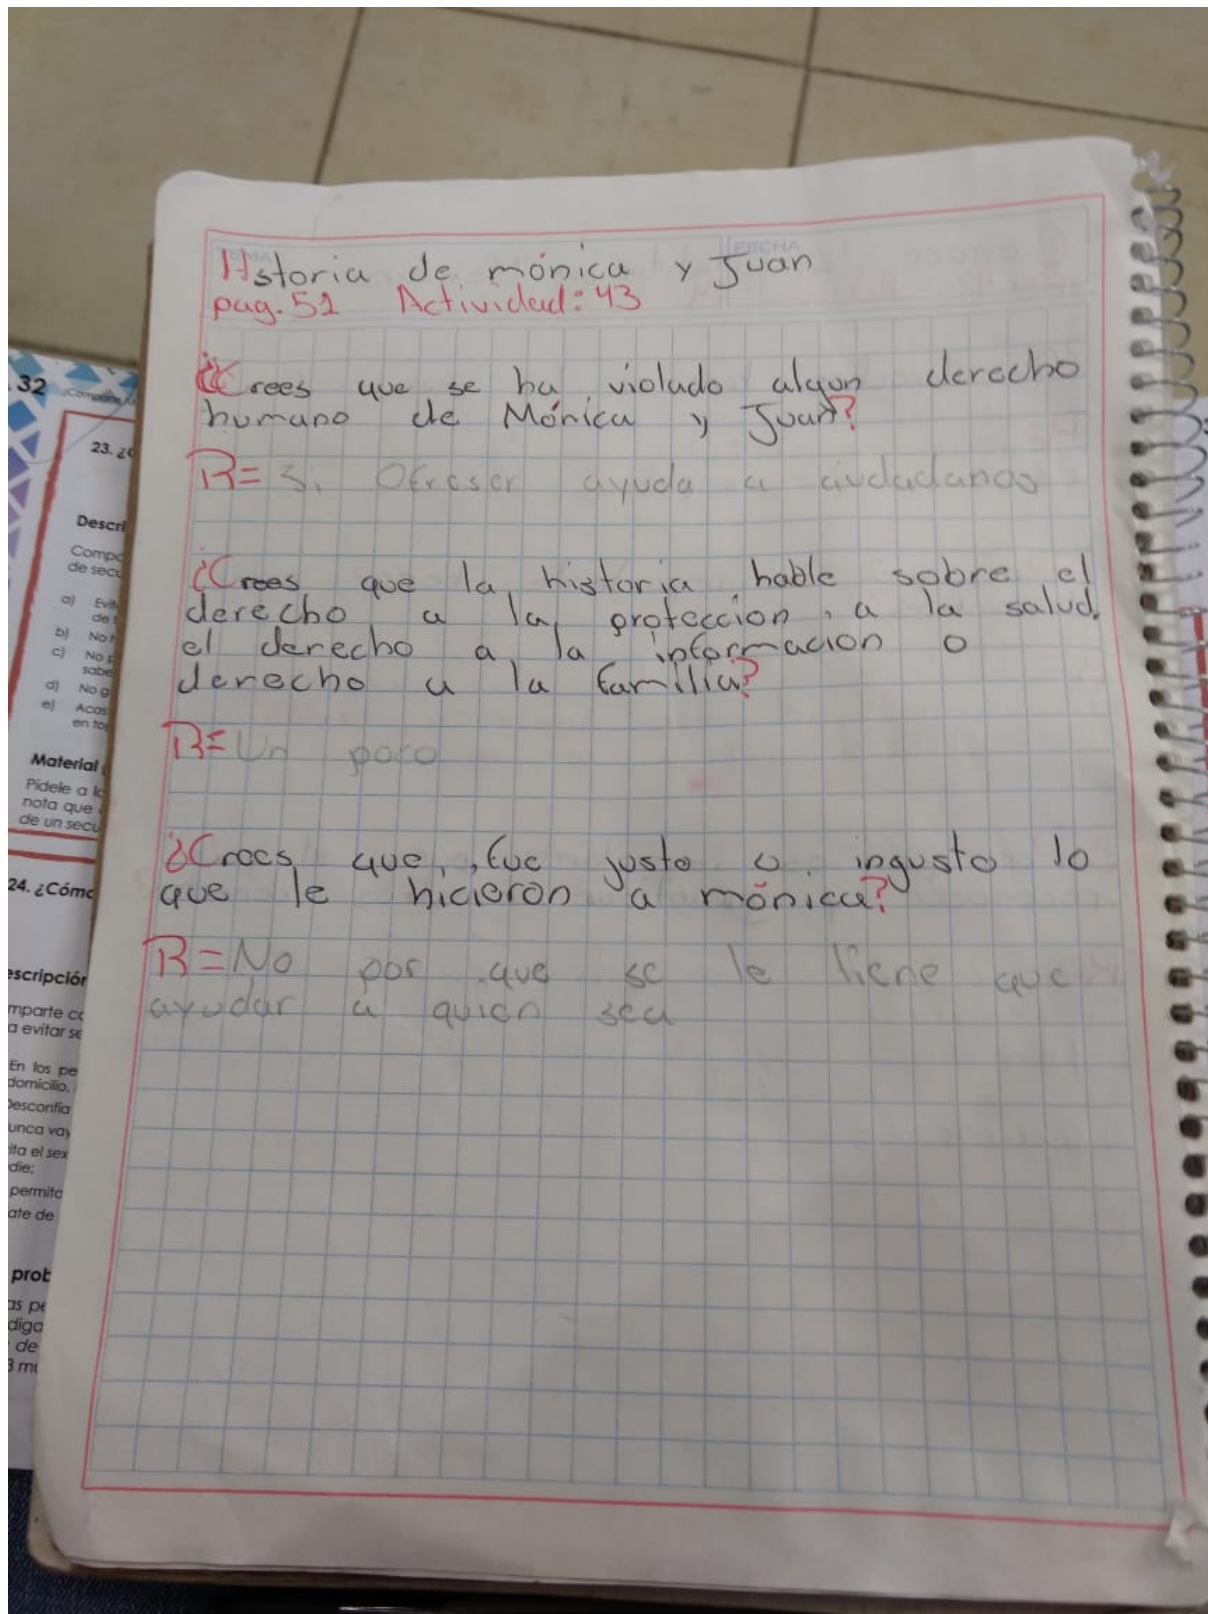 Historia de mónica y Juan
pag. 51 Actividad: 43
¿Crees que se ha violado algun derecho
humano de Mónica y Juan?
R= Si Ofreser ayuda a ciudadanos
¿Crees que la historia hable sobre el
derecho a la protección, a la salud,
el derecho a la informacion o
derecho a la familia?
R= Un poco
¿Crees que fue justo o ingusto lo
que le hicieron a mónica?
R= No por que se le tiene que
ayudar a quien sea
32
23.
Descri
Compa
de secu
a) Evit
de
b) No
c) No
sabe
d) No g
e) Acos
en
Material
Pídele a
nota que
de un secu
24. ¿Cómo
escripción
mparte co
a evitar se
En los pe
domicilio,
Desconfía
unca vay
ita el sex
die;
permita
ate de
prob
as pe
diga
de
FECHA